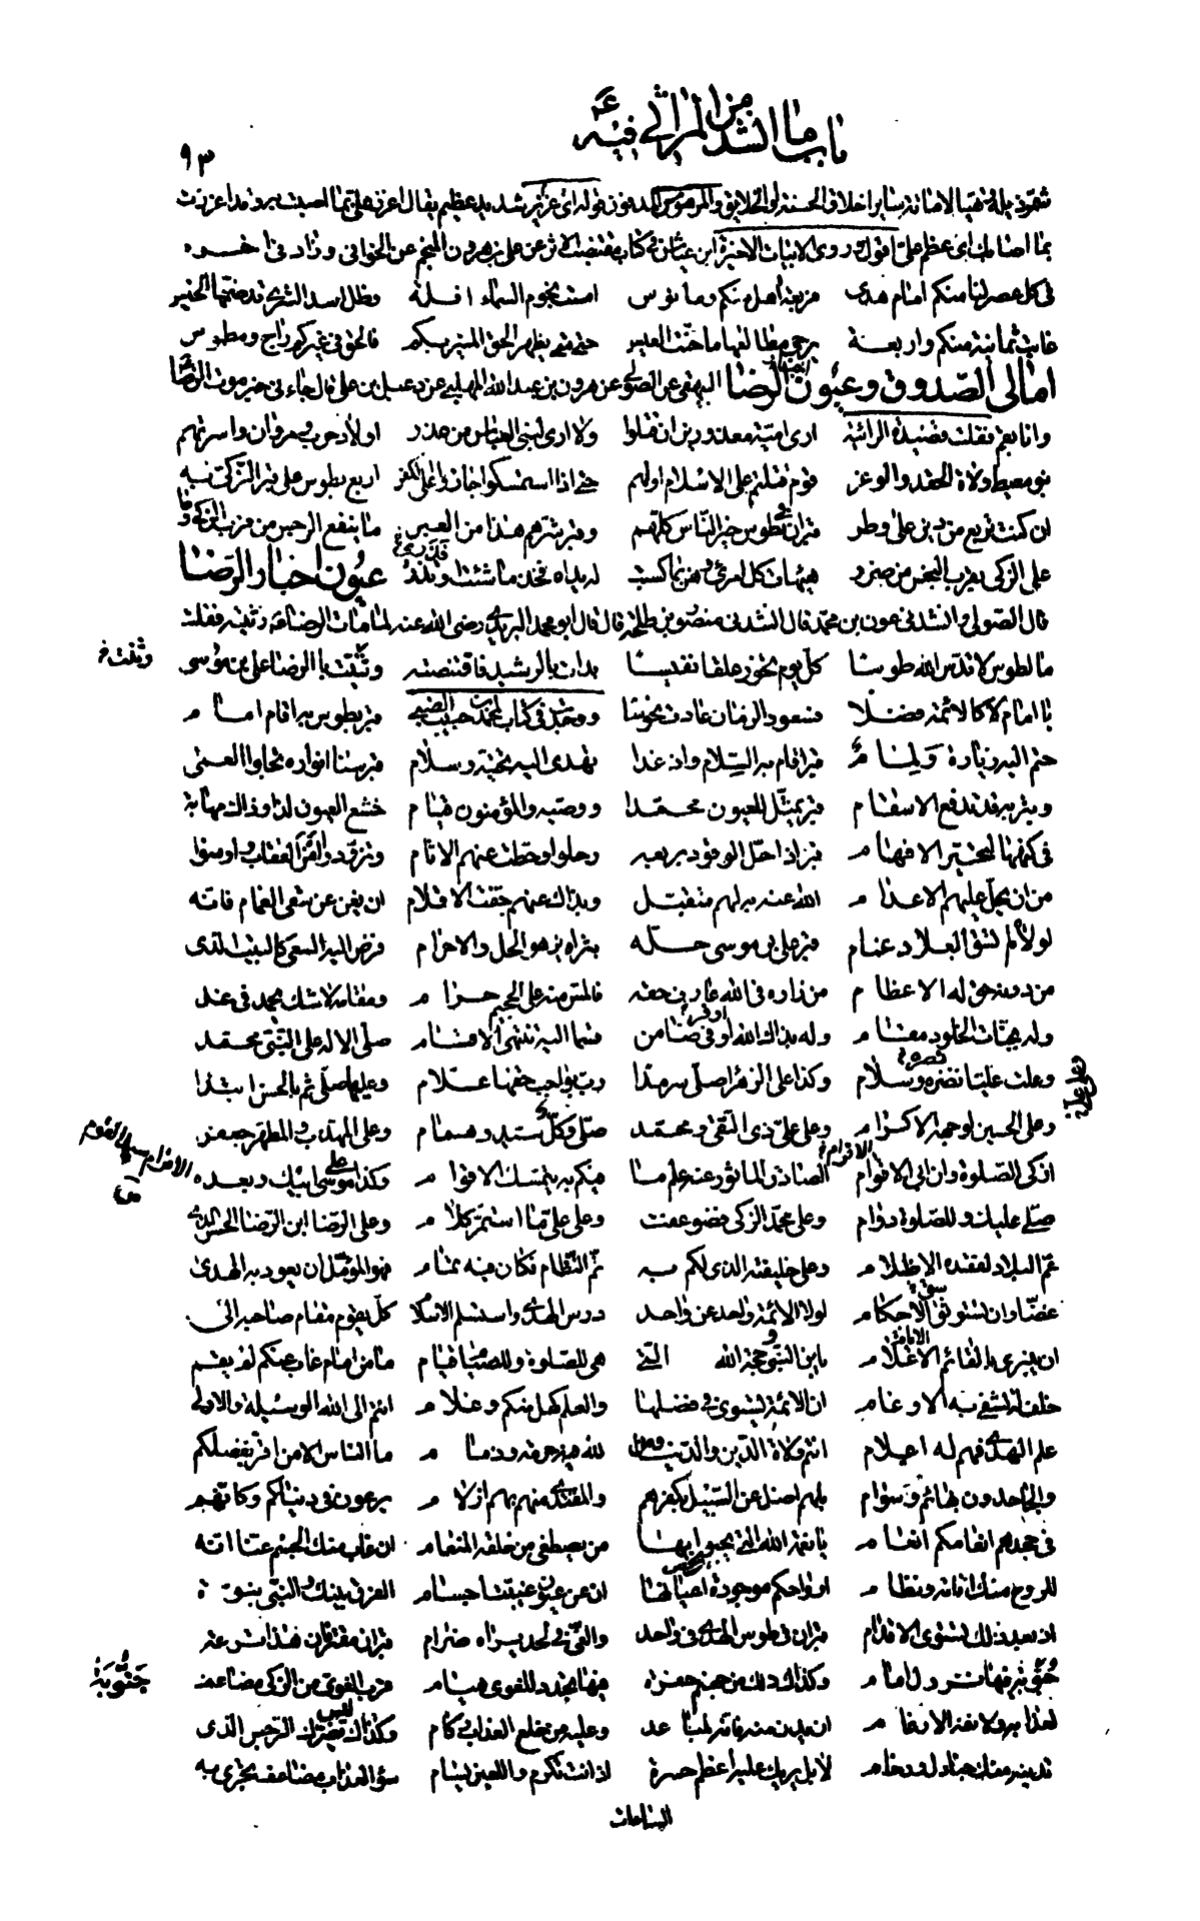 باب ما انشد من المراثي فيه ع
٩٣
بما اصابك اى عظم على اقول روى الابيات الاخيرة ابن عياش فى كتاب مقتضب الاثر عن على بن هرون المنجم عن الخوافى وزاد فى اخره
فى كل عصر لنا منكم امام هدى فربعه اهل منكم ومانوس امست نجوم السماء افلة وظل اسد الشرى قد ضمها الخيس
غابت ثمانية منكم واربعة يرجى مطالعها ما حنت العيس حتى متى يظهر الحق المنير بكم فالحق فى غيركم داج ومطموس
امالى الصدوق وعيون اخبار الرضا البيهقى عن الصولى عن هرون بن عبد الله المهلبى عن دعبل بن على قال جاءنى خبر موت الرضا
وانا بقم فقلت قصيدتى الرائية ارى امية معذورين ان قتلوا ولا ارى لبنى العباس من عذر اولاد حرب ومروان واسرتهم
بنو معيط ولاة الحقد والوغر قوم قتلتم على الاسلام اولهم حتى اذا استمسكوا جازوا على الكفر اربع بطوس على قبر الزكى به
ان كنت تربع من دين على وطر قبران فى طوس خير الناس كلهم وقبر شرهم هذا من العبر ما ينفع الرجس من قرب الزكى وما
على الزكى بقرب الرجس من ضرر هيهات كل امرئ رهن بما كسبت له يداه فخذ ما شئت او فذر عيون اخبار الرضا
قال الصولى وانشدنى عون بن محمد قال انشدنى منصور بن طلحة قال قال ابو محمد اليزيدى رضى الله عنه لما مات الرضا ع رثيته فقلت
ما لطوس لا قدس الله طوسا كل يوم تحوز علقا نفيسا بدات بالرشيد فاقتنصته وثنت بالرضا على بن موسى
يا امام لا كالائمة فضلا فسعود الزمان عادت نحوسا ووجدت فى كتاب لمحمد بن حبيب الضبى قبر بطوس به اقام امام
حتم اليه زيارة ولمام قبر اقام به السلام واذ غدا تهدى اليه تحية وسلام قبر سنا انواره تجلو العمى
وبتربه قد تدفع الاسقام قبر يمثل للعيون محمدا ووصيه والمؤمنون قيام خشع العيون لذا وذاك مهابة
فى كنهها لتحير الافهام قبر اذا حل الوفود بربعه رحلوا وحطت عنهم الاثام وتزودوا امن العقاب واومنوا
من ان يحل عليهم الاعدام الله عنه به لهم متقبل وبذاك عنهم جفت الاقلام ان يغن عن سقى الغمام فانه
لولاه لم تسق البلاد غمام قبر على بن موسى حله بثراه يزهو الحل والاحرام فرض اليه السعى كالبيت الذى
من دونه حق له الاعظام من زاره فى الله عارف حقه فالمس منه على الجحيم حرام ومقامه لا شك يحمد فى غد
وله بجنات الخلود مقام وله بذاك الله اوفى ضامن قسما اليه تنتهى الاقسام صلى الاله على النبى محمد
وعلت عليا نضرة وسلام وكذا على الزهرا صلى سرمدا رب بواجب حقها علام وعليه صلى ثم بالحسن ابتدا
وعلى الحسين لوجهه الاكرام وعلى على ذى التقى ومحمد صلى وكل سيد وهمام وعلى المهذب والمطهر جعفر
ازكى الصلوة وان ابى الاقوام الصادق الماثور عنه علم ما فيكم به يتمسك الاقوام وكذا على موسى ابيك وبعده
صلى عليك وللصلوة دوام وعلى محمد الزكى فضوعفت وعلى على ما استمر كلام وعلى الرضا ابن الرضا الحسن الذى
عم البلاد لفقده الاظلام وعلى خليفته الذى لكم به تم النظام فكان فيه تمام فهو المؤمل ان يعود به الهدى
غضا وان تستوثق الاحكام لولا الائمة واحد عن واحد درس الهدى واستسلم الاسلام كل يقوم مقام صاحبه الى
ان ينبرى بالقائم الاعلام يابن النبى وحجة الله التى هى للصلوة وللصيام قيام ما من امام غاب عنكم لم يقم
خلف له تشفى به الاوغام ان الائمة تستوى فى فضلها والعلم كهل منكم وغلام انتم الى الله الوسيلة والاولى
علم الهدى فهم له اعلام انتم ولاة الدين والدنيا ومن لله فيه حرمة وذمام ما الناس الا من اقر بفضلكم
والجاحدون بهائم وسوام بل هم اضل عن السبيل بكفرهم والمقتدى منهم بهم ازلام يرعون فى دنياكم وكانهم
فى جحدهم انعامكم انعام يا نعمة الله التى يحبو بها من يصطفى من خلقه المنعام ان غاب منك الجسم عنا انه
للروح منك اقامة ونظام ارواحكم موجودة اعيانها ان عن عيون غيبت اجسام الفرق بينك والنبى نبوة
اذ بعد ذلك تستوى الاقدام قبران فى طوس الهدى فى واحد والغى فى لحد يراه ضرام قبران مقترنان هذا ترعة
جنوية فيها تزور امام وكذاك ذلك من جهنم حفرة فيها يجدد للغوى هيام قرب الغوى من الزكى مضاعف
لعذابه ولانفه الارغام ان يدن منه فانه لمباعد وعليه من خلع العذاب ركام وكذاك ليس يضرك الرجس الذى
يدنيه منك جنادل ورخام لا بل يريك عليه اعظم حسرة اذ انت تكرم واللعين يسام سوء العذاب مضاعف تجرى به
الساعات